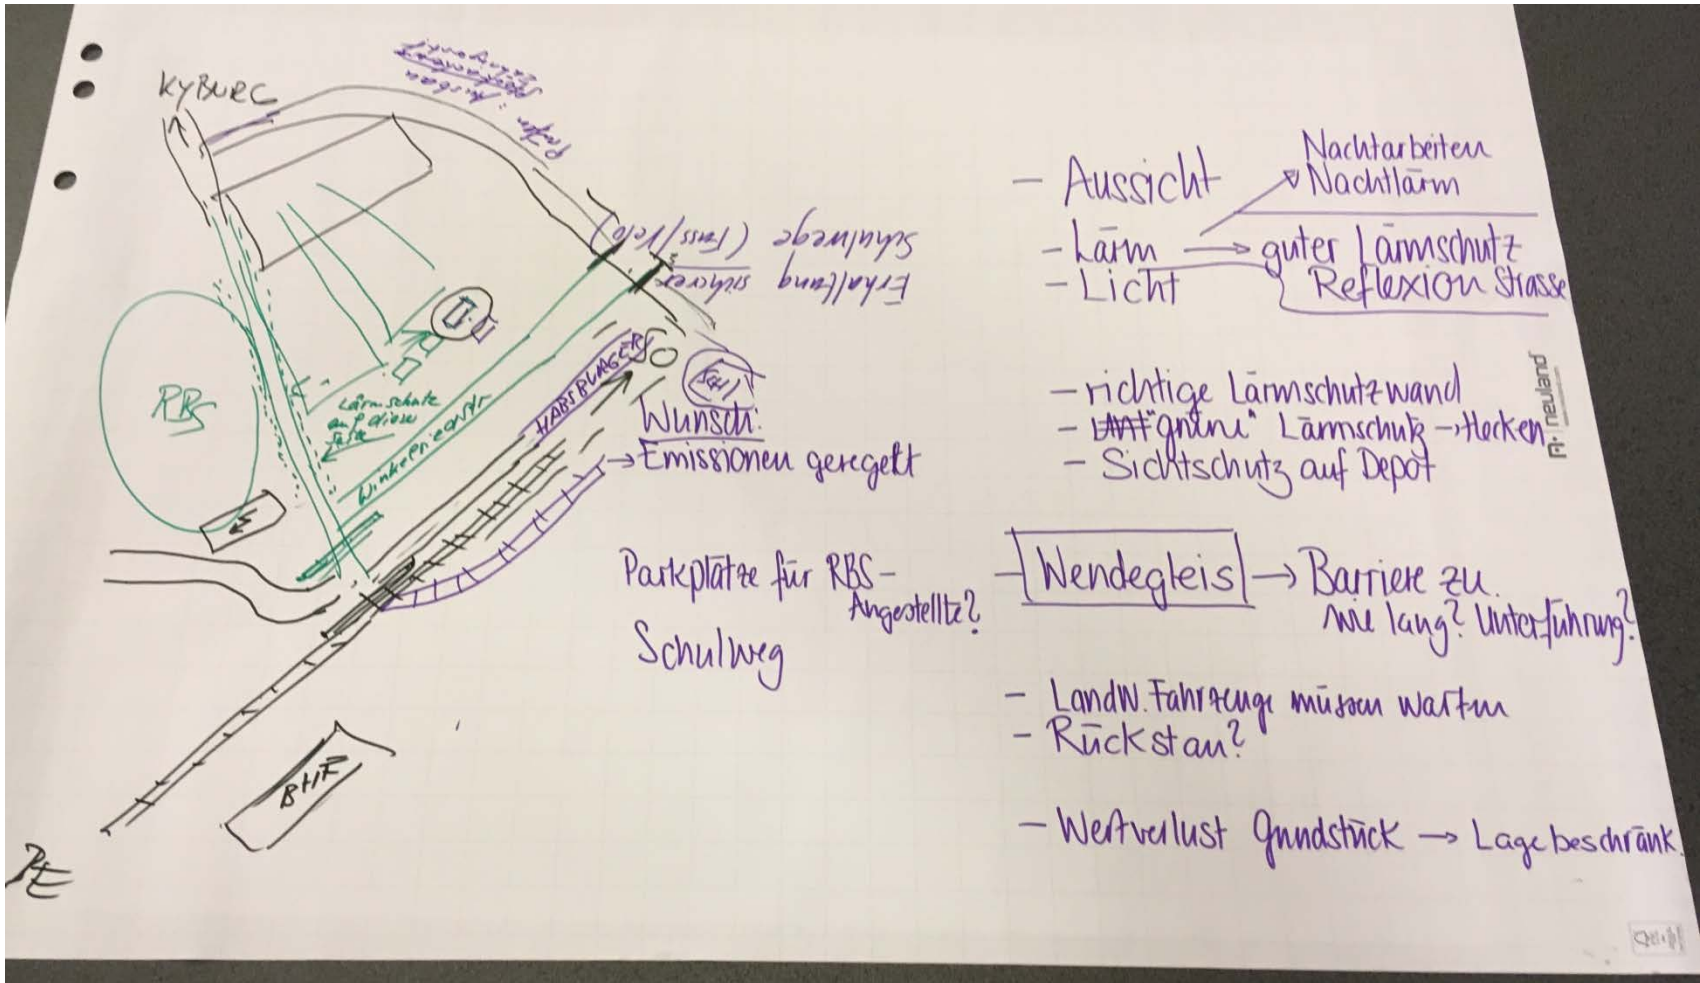 KYBURG
Prüfen: Ausbau
Erhaltung sicherer
Schulwege (Fuss/Velo)
RBS
Lärmschutz
auf diese
Seite
Winkelriedstr
HABSBURGERS
SCH
BHF
BE
Wunsch:
→ Emissionen geregelt
Parkplätze für RBS-
Angestellte?
Schulweg
- Aussicht
Nachtarbeiten
Nachtlärm
- Lärm → guter Lärmschutz
- Licht Reflexion Strasse
- richtige Lärmschutzwand
- "grüne" Lärmschutz → Hecken
- Sichtschutz auf Depot
- Wendegleis → Barriere zu.
wie lang? Unterführung?
- Landw. Fahrzeuge müssen warten
- Rückstau?
- Wertverlust Grundstück → Lage beschränk.
neuland